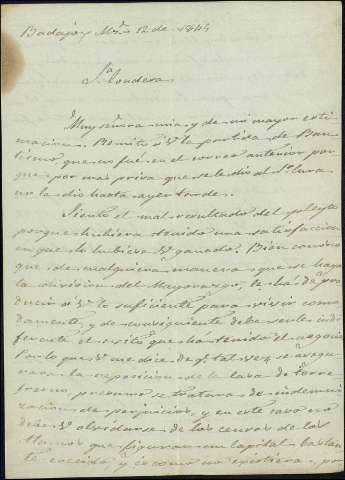 Badajoz Mzo 12 de 1844
Sra Condesa
Muy señora mia y de mi mayor esti
macion: Remito á V. la partida de Bau
tismo, que no fué en el correo anterior por
que por mas prisa que se le dio al Sr. Cura
no la dio hasta ayer tarde.
Siento el mal resultado del pleyto
porque hubiera tenido una satisfaccion
en que lo hubiera V. ganado: Bien conozco
que de cualquiera manera que se haga
la division del Mayorazgo, le ha de pro
ducir á V. lo suficiente para vivir como
damente, y de consiguiente debe serle indi
ferente el exito que ha tenido el negocio
Por lo que V. me dice de qe. tal vez se
la reposicion de la Casa de Torre
fresno, presumo se tratara de indemni
zacion de perjuicios, y en este caso no
debe V. olvidarse de los censos de los
que figuran un capital bastan
te crecido, y es como no existiera, por